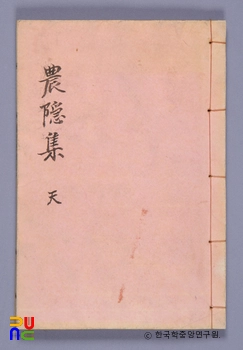 農隐集 天
ⓒ 한국학중앙연구원